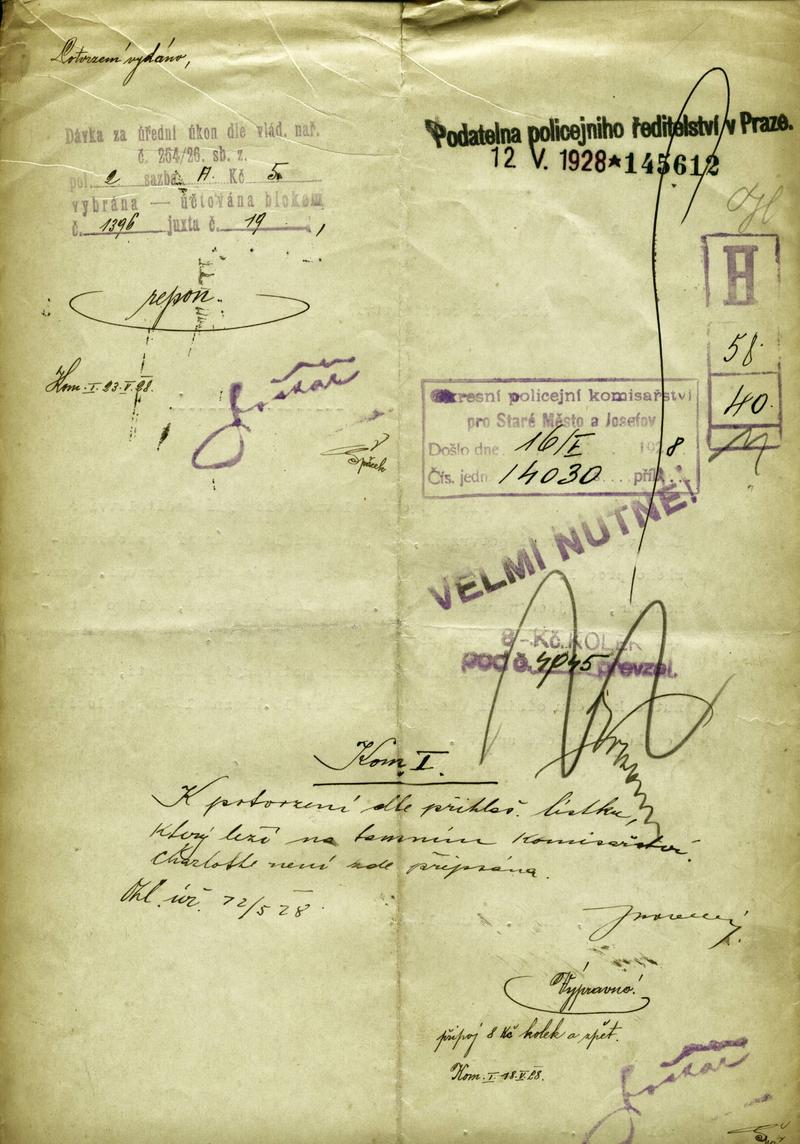 Potvrzení vydáno,
Dávka za úřední úkon dle vlád. nař.
č. 254/26. sb. z.
pol. 2 sazba A. Kč 5
vybrána — účtována blokem
č. 1396 juxta č. 19,
repon.
Kom. I. 23.V.28.
Podatelna policejního ředitelství v Praze.
12 V. 1928*145612
H
58.
40.
Okresní policejní komisařství
pro Staré Město a Josefov
Došlo dne 16/V 1928
Čís. jedn. 14030 příl.
VELMI NUTNÉ!
8-Kč.KOLEK
pod č. 4045 převzal.
Kom. I.
K potvrzení dle přihlaš. lístku,
který leží na tamním komisařství.
Charlotte není zde připsána.
Ohl. úř. 12/5 28.
Výpravno!
připoj 8 Kč kolek a zpět.
Kom. I. 18.V.28.